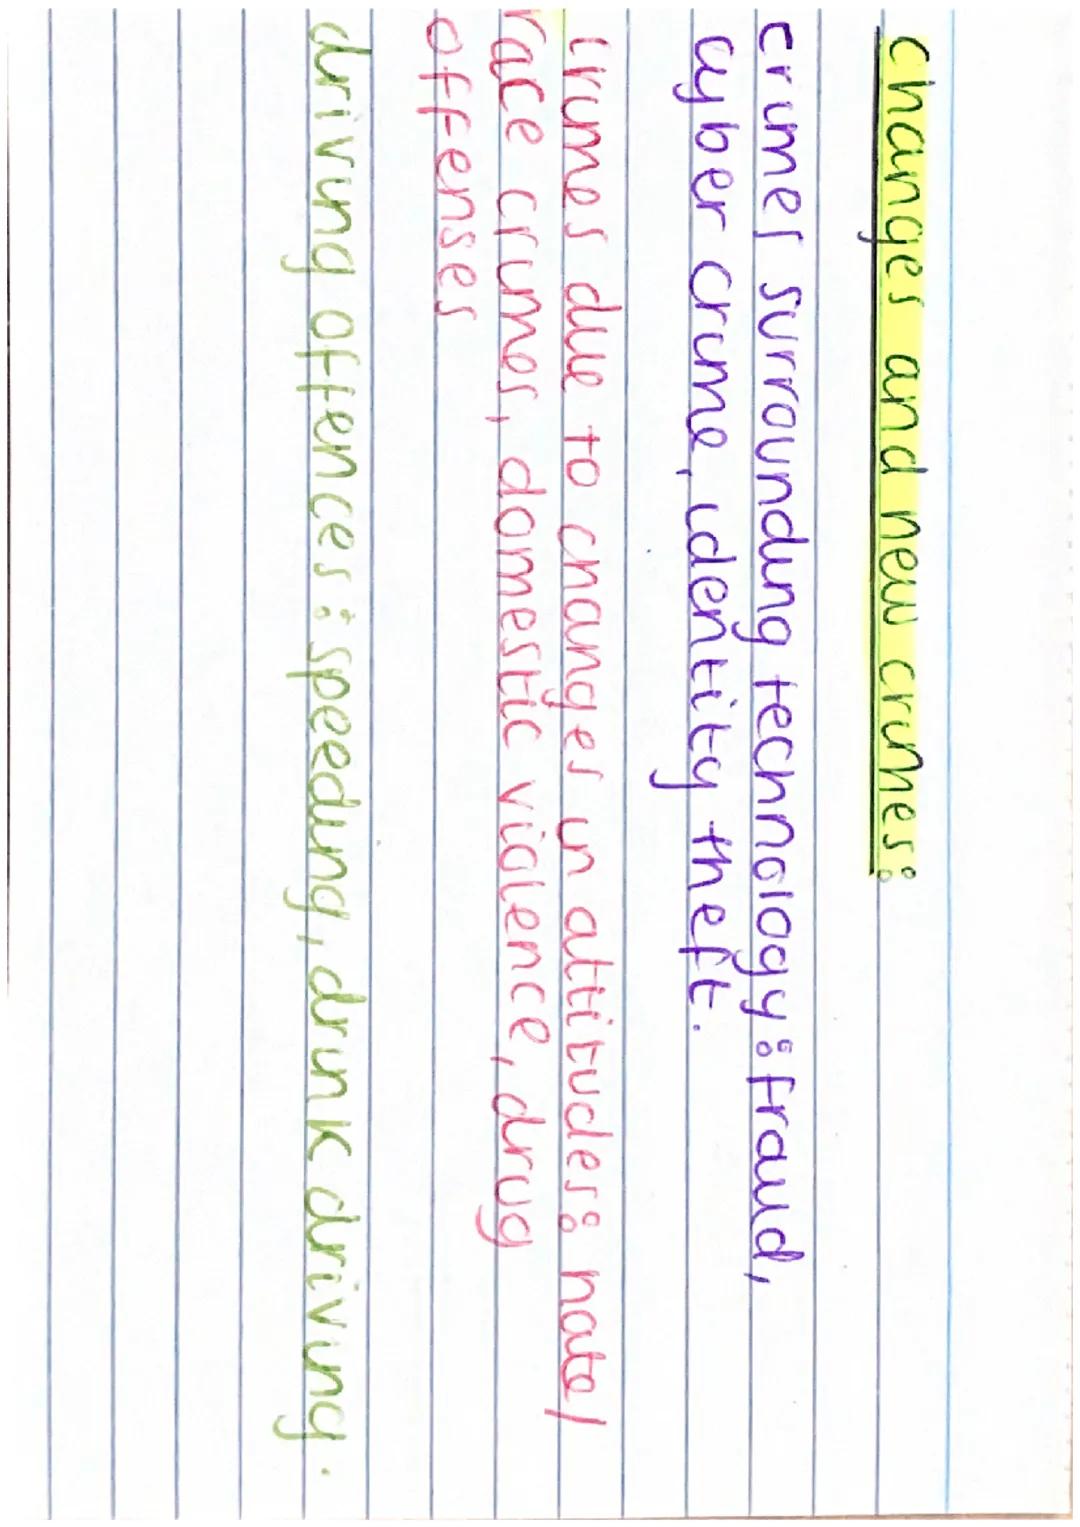 changes and new crimes:
crimes surrounding technology: fraud,
cyber crime, identity theft.
crimes due to changes in attitudes: hate/
race crimes, domestic violence, drug
offenses
driving offences: speeding, drunk driving.